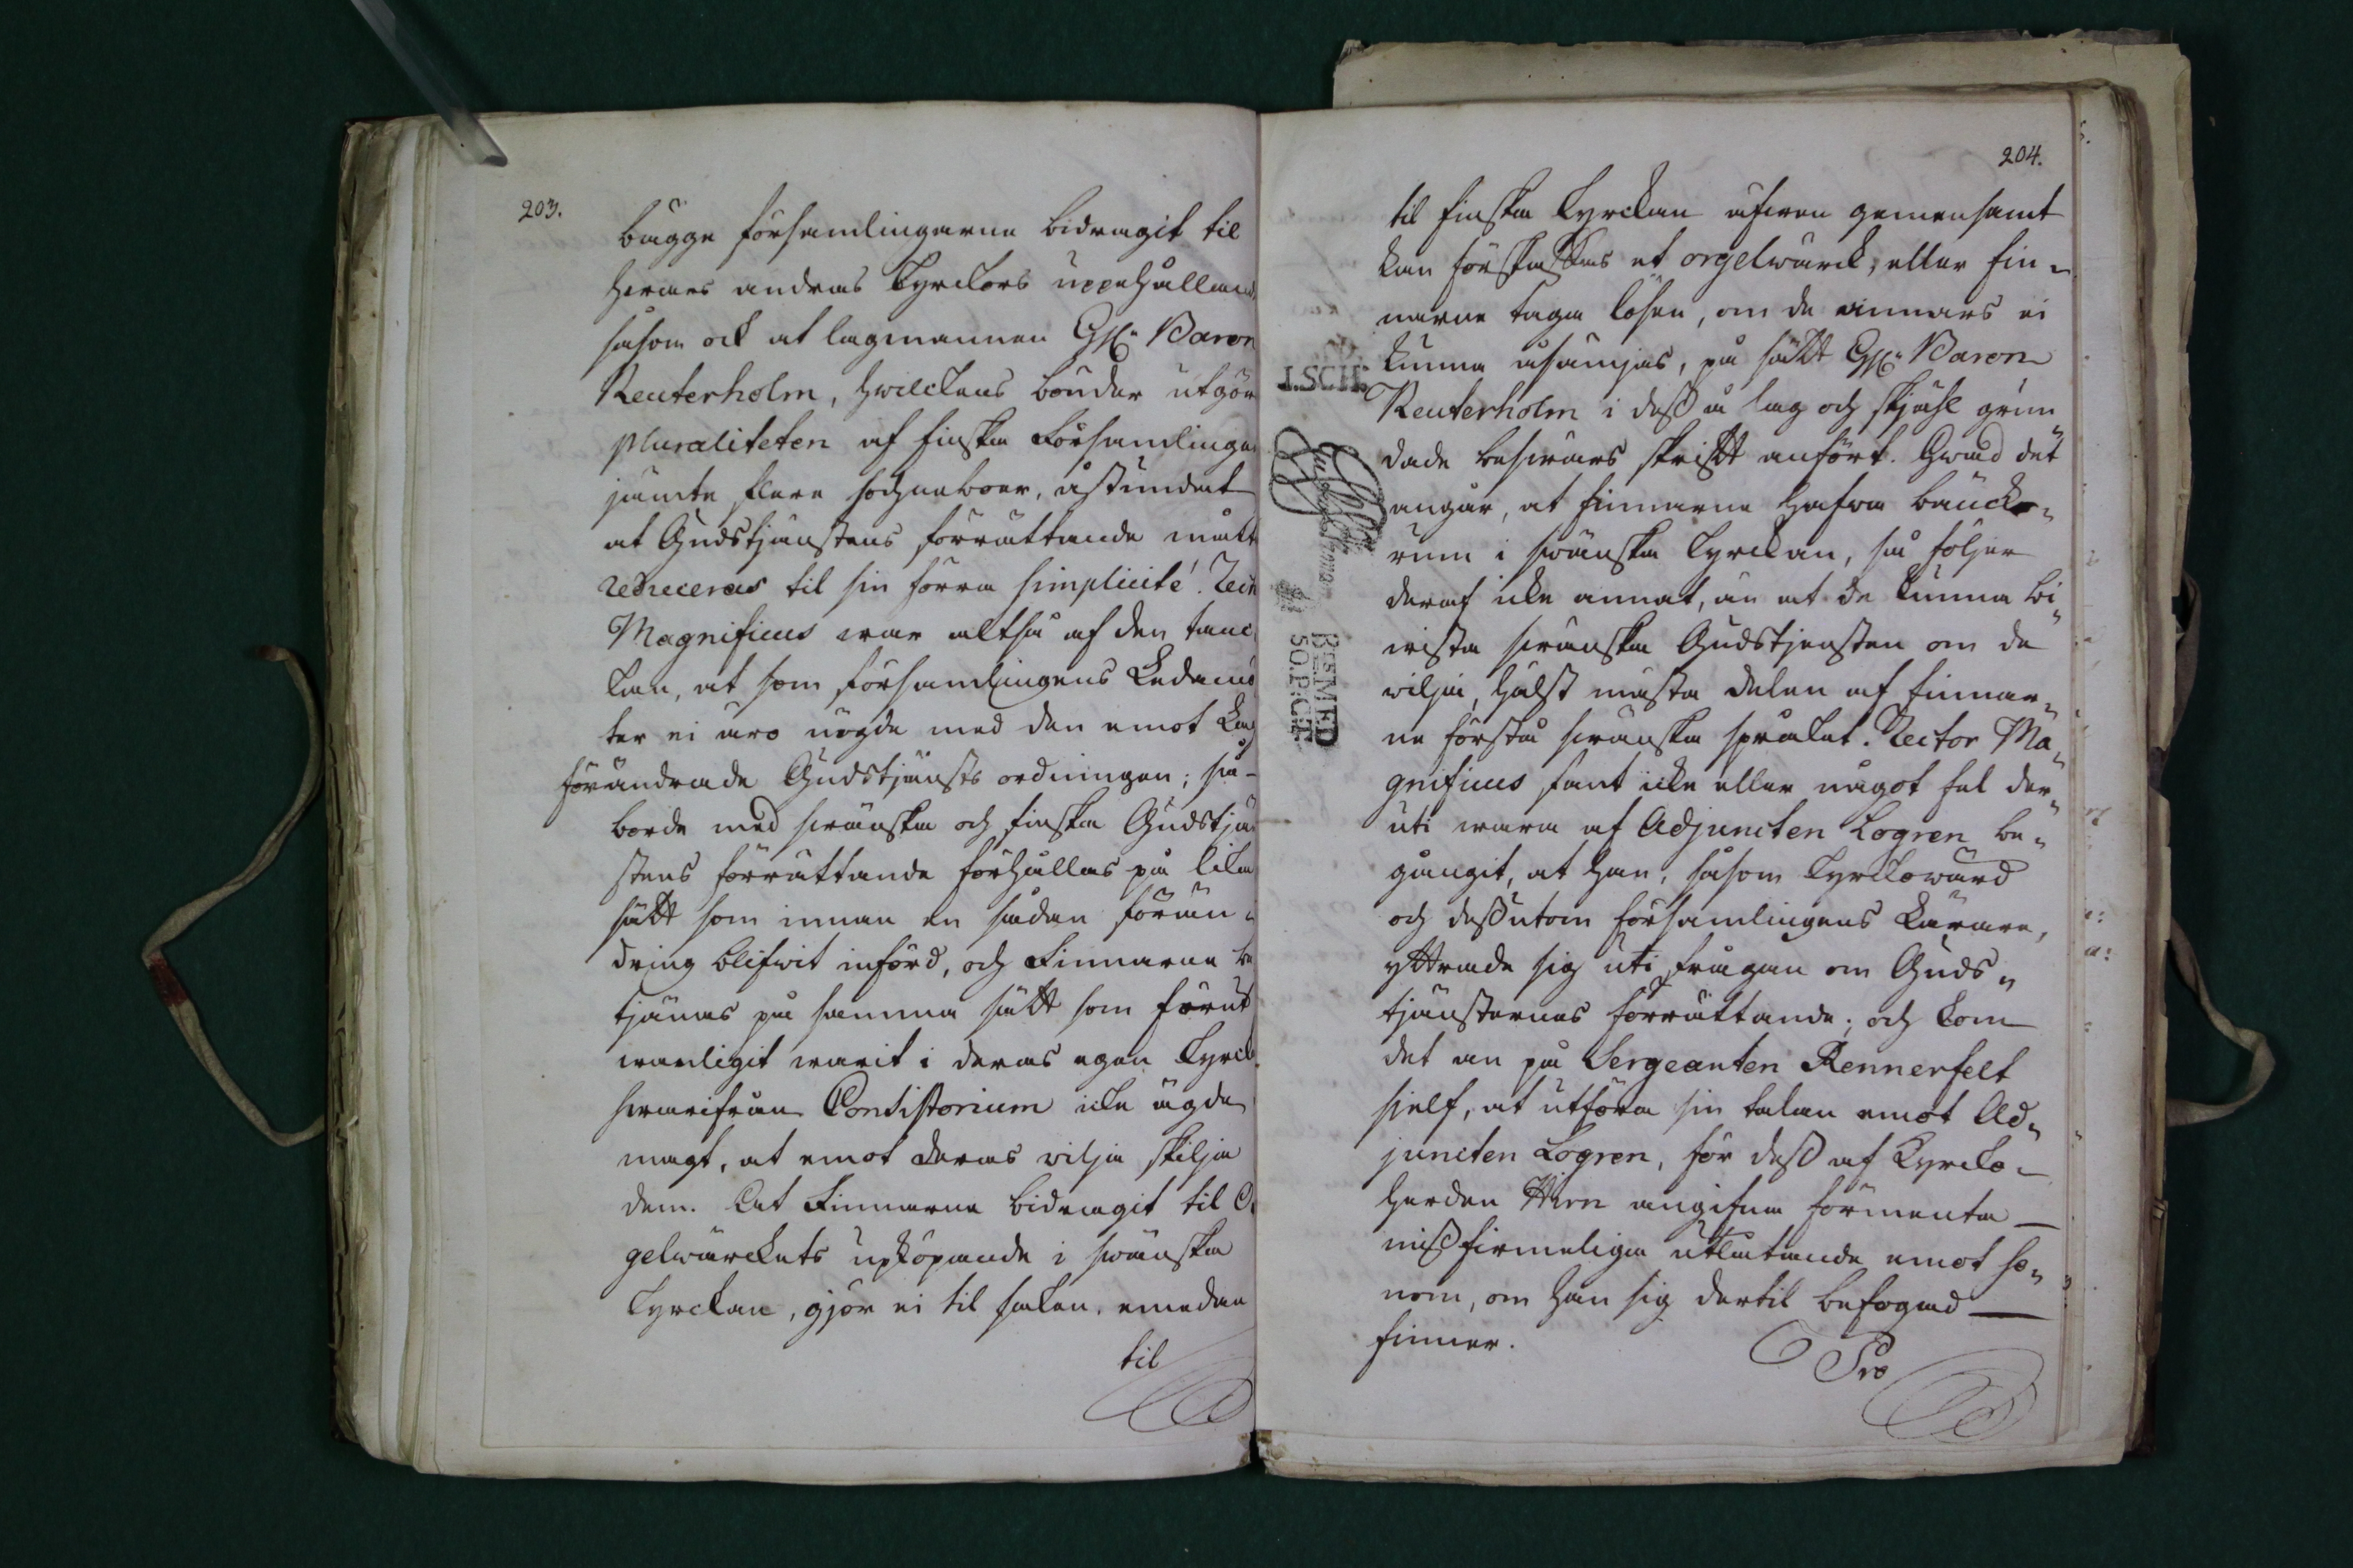 203.
bägge församlingarne bidragit til
hwars andras Kyrckors uppehålland
såsom ock at lagmannen H:r Baron
Reuterholm, hwilckens bönder utgör
pluraliteten af finska Församlinga
jämte flere sochneboer, åstundat
at Gudstjänstens förrättande måtte
reduceras til sin förra simplicité. Rect
Magnificus war altså af den tanc
kan, at som församlingens Ledamö
ter ei äro nögde med den emot Lag
förändrade Gudstjänsts ordningen; så
borde med swänska och finska Gudstjän
stens förrättande förhållas på lika
sätt som innan en sådan förän-
dring blifwit införd, och Finnarne be
tjänas på samma sätt som förut
wanligit warit i deras egen Kyrck
hwarifrån Consistorium icke ägde
magt, at emot deras wilja skilja
dem. At Finnarne bidragit til Or
gelwärckets upköpande i swänska
Kyrckan, gjör ei til saken, emedan
til
204.
til finska Kyrckan äfwen gemensamt
kan förskaffas et orgelwärck, eller fin-
narne taga lösen, om de annars ei
kunna åsämjas, på sätt H:r Baron
Reuterholm i dess å lag och skjähl grun
dade beswärs skrift anfört. Hwad det
angår, at finnarne hafwa bäncke-
rum i swänska Kyrckan, så följer
deraf icke annat, än at de kunna bi
wista swänska Gudstjensten om de
wilja, hälst mästa delen af finnar-
ne förstå swänska språket. Rector Ma
gnificus fant icke eller något fel der
uti wara af Adjuncten Logren be-
gångit, at han, såsom Kyrckowärd
och dessutom församlingens Lärare,
yttrade sig uti frågan om Guds-
tjänsternes förrättande; och kom
det an på Sergeanten Rennerfelt
sjelf, at utföra sin talan emot Ad-
juncten Logren, för dess af Kyrcko-
herden Hirn angifna förmenta
missfirmeliga utlåtande emot ho-
nom, om han sig dertil befogad
finner.
Pro
I.SCH:
SMED
50.P:CT.